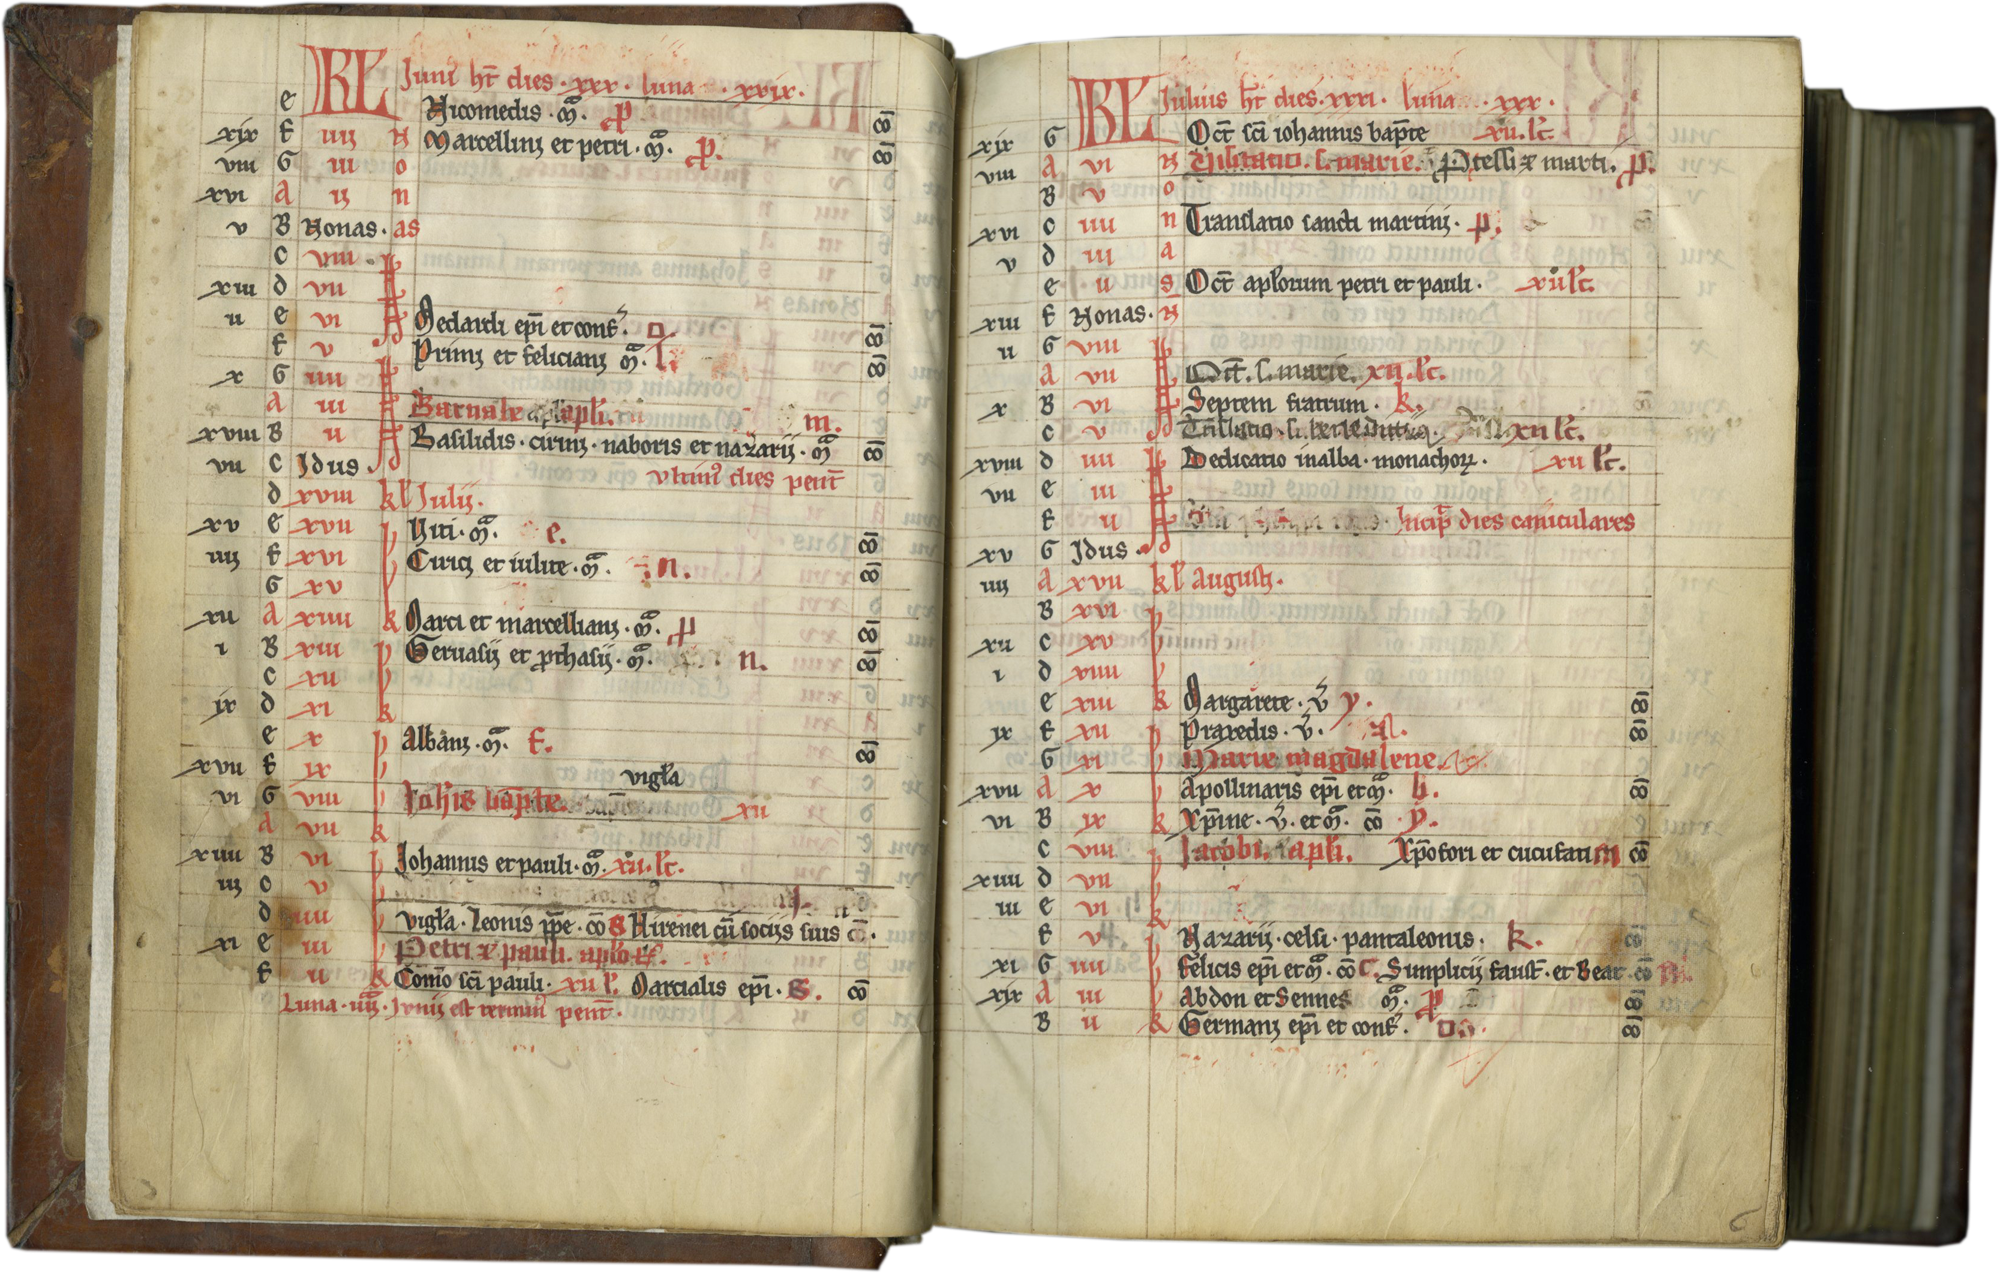 KL Iunii ht dies · xxx · luna · xxix ·
e Nicomedis · m̄ · p
xix f iiij N Marcellini et petri · m̄ · p.
viii G iii o
xvi A ij n
v B Nonas · as
c viii
xiii d vii
ii e vi Medardi epi et conf. o.
f v Primi et feliciani m̄ · l.
x G iiii
A iii Barnabe apli. m.
xviii B ii Basilidis · cirini · naboris et nazarij · m̄
vii c Idus ultim9 dies pent
d xviii kl Iulij.
xv e xvii Viti · m̄ · e.
iiij f xvi Cirici et iulite · m̄ · n.
G xv
xii A xiiii k Marci et marcelliani · m̄ · p
i B xiii Geruasij et prothasij · m̄ · n.
c xii
ix d xi k
e x Albani · m̄ · f.
xvii f ix vigla
vi G viii Iohis bapte. xii
A vii k
xiiii B vi Johannis et pauli · m̄ · xii · lc.
iij c v
d iiii vigla · Leonis ppe · co S Hirenei cu socijs suis co.
xi e iii Petri et pauli. aplo
f ii k Como sci pauli. xii l. Marcialis epi. S. co
Luna · iiij · Ivnij est termin9 pent.
KL Iulius ht dies · xxxi · luna · xxx ·
xix G Oct sci iohannis bapte xii. lc.
viii A vi N Visitatio. s. marie. Processi et marti. p.
B v o
xvi c iiii n Translatio sancti martini · p.
v d iii a
e ii s Oct aplorum petri et pauli · xii lc.
xiii f Nonas · N
ii G viii
A vii Oct. s. marie. xii. lc.
x B vi Septem fratrum · k.
c v Transl​atio s. benedicti xii lc.
xviii d iiii Dedicatio in alba · monachorum · xii lc.
vii e iii
f ii Incip dies caniculares
xv G Idus ·
iiij A xvii kl augusti ·
B xvi
xii c xv
i d xiiii
e xiii k Margarete · v̄ y.
ix f xii Praxedis · v̄ ·
G xi Marie magdalene.
xvii A x Apollinaris epi et m̄ · h.
vi B ix k Xpine · v̄ · et m̄ · co · y.
c viii Iacobi. apli. Xpofori et cucufati m co
xiiii d vii
iii e vi k
f v Nazarij · celsi · pantaleonis · k.
xi G iiii felicis epi et m̄ · co C. Simplicij faust · et Beat
xix A iii Abdon et Sennes m̄ · p
B ii k Germani epi et conf · o
6